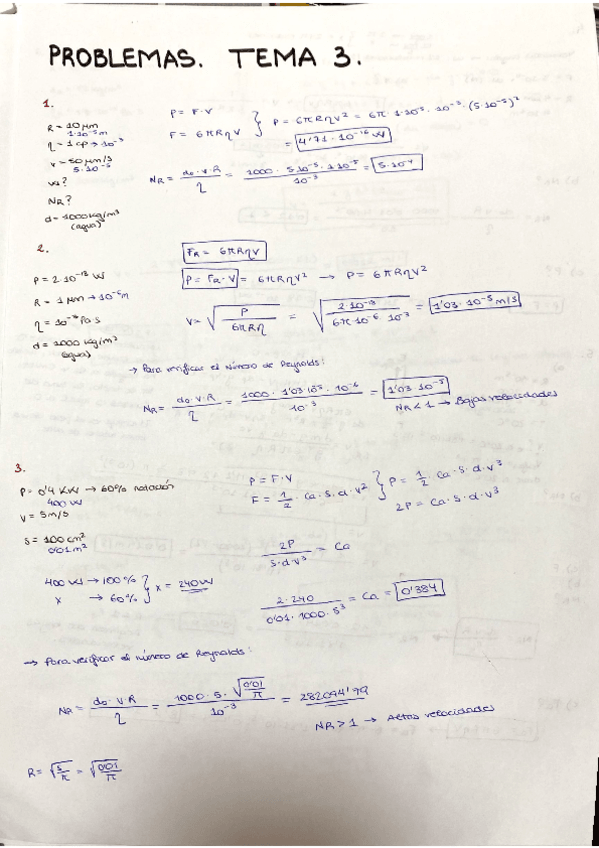 PROBLEMAS. TEMA 3.
1.
R = 10 μm
1·10⁻⁵ m
η = 1 cp → 10⁻³
v = 50 μm/s
5·10⁻⁵
W?
NR?
d = 1000 kg/m³
(agua)
P = F·V
F = 6πRηV
P = 6πRηV² = 6π · 1·10⁻⁵ · 10⁻³ · (5·10⁻⁵)²
= 4'71 · 10⁻¹⁶ W
NR = do·V·R / η = 1000 · 5·10⁻⁵ · 1·10⁻⁵ / 10⁻³ = 5·10⁻⁴
2.
FR = 6πRηV
P = 2·10⁻¹⁷ W
R = 1 μm → 10⁻⁶ m
η = 10⁻³ Pa·s
d = 1000 kg/m³
(agua)
P = FR·V = 6πRηV² → P = 6πRηV²
V = √(P / 6πRη) = √(2·10⁻¹⁷ / 6π·10⁻⁶·10⁻³) = 1'03·10⁻⁵ m/s
→ Para verificar el número de Reynolds:
NR = do·V·R / η = 1000 · 1'03·10⁻⁵ · 10⁻⁶ / 10⁻³ = 1'03·10⁻⁵
NR < 1 → Bajas velocidades
3.
P = 0'4 KW → 60% natación
400 W
V = 5 m/s
S = 100 cm²
0'01 m²
P = F·V
F = 1/2 · Ca·S·d·v²
P = 1/2 Ca·S·d·v³
2P = Ca·S·d·v³
2P / S·d·v³ = Ca
400 W → 100%
x → 60%
x = 240 W
2·240 / 0'01·1000·5³ = Ca = 0'384
→ Para verificar el número de Reynolds:
NR = do·V·R / η = 1000 · 5 · √(0'01/π) / 10⁻³ = 282094'79
NR > 1 → Altas velocidades
R = √(S/π) = √(0'01/π)